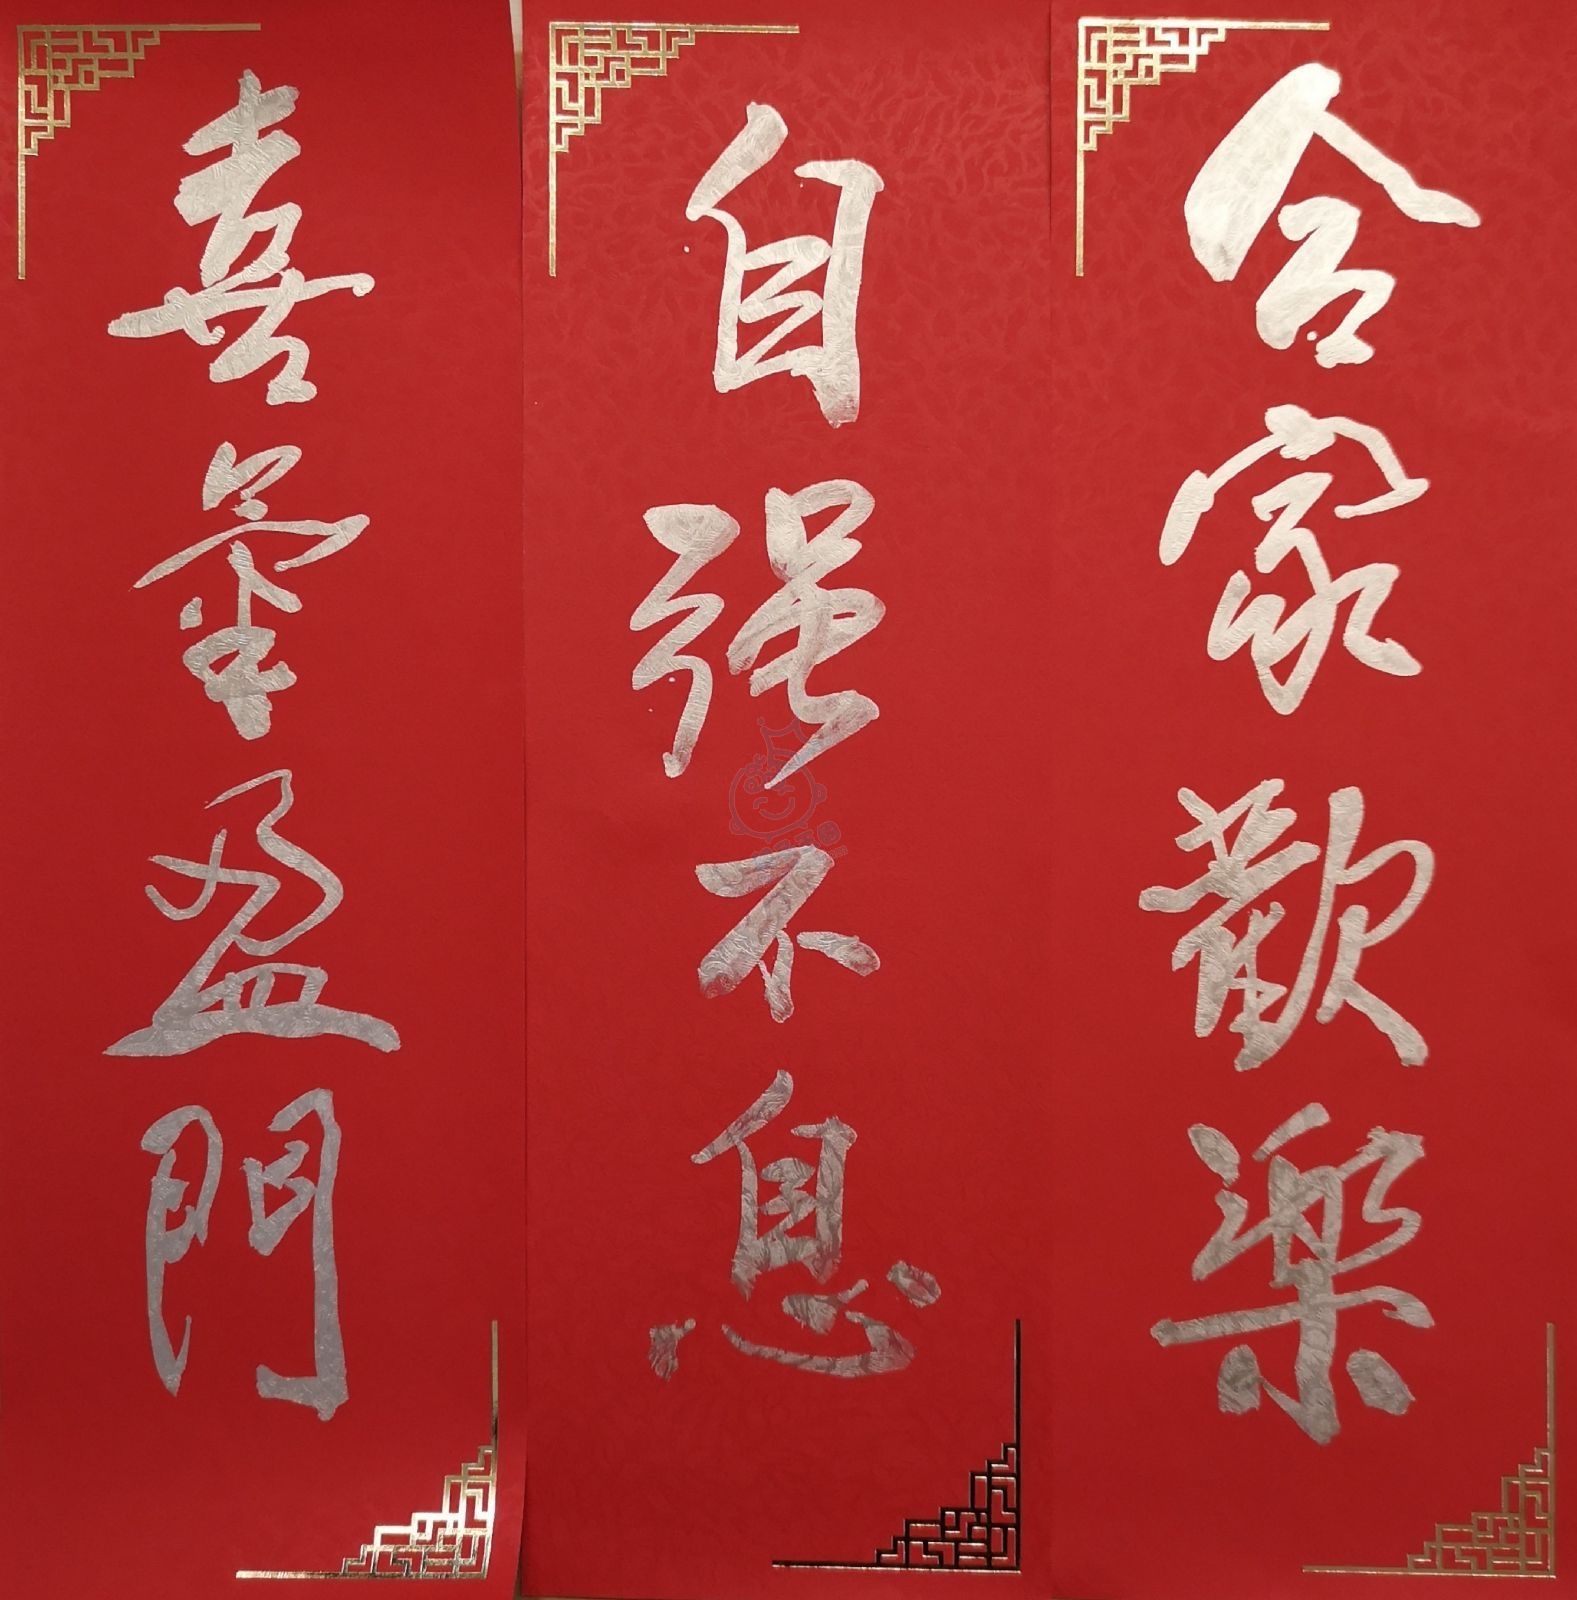 合家歡樂
自强不息
喜氣盈門